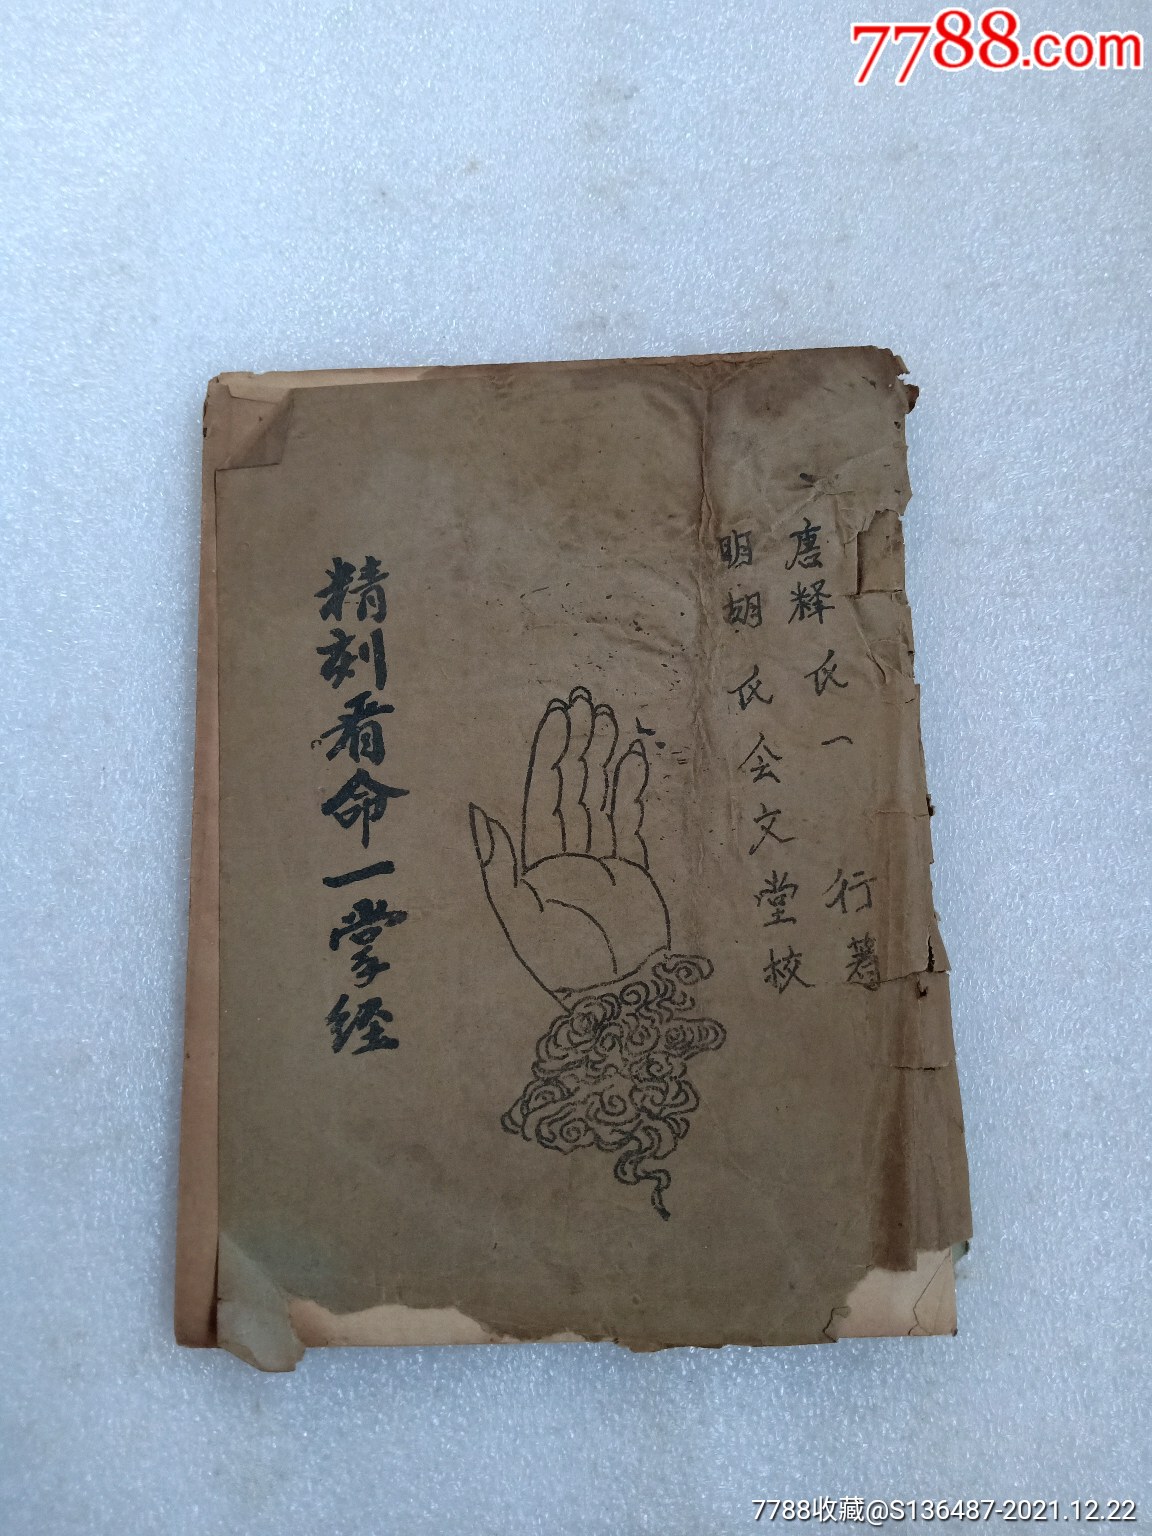 7788.com
唐释氏一行著
明胡氏会文堂校
精刻看命一掌经
7788收藏@S136487-2021.12.22